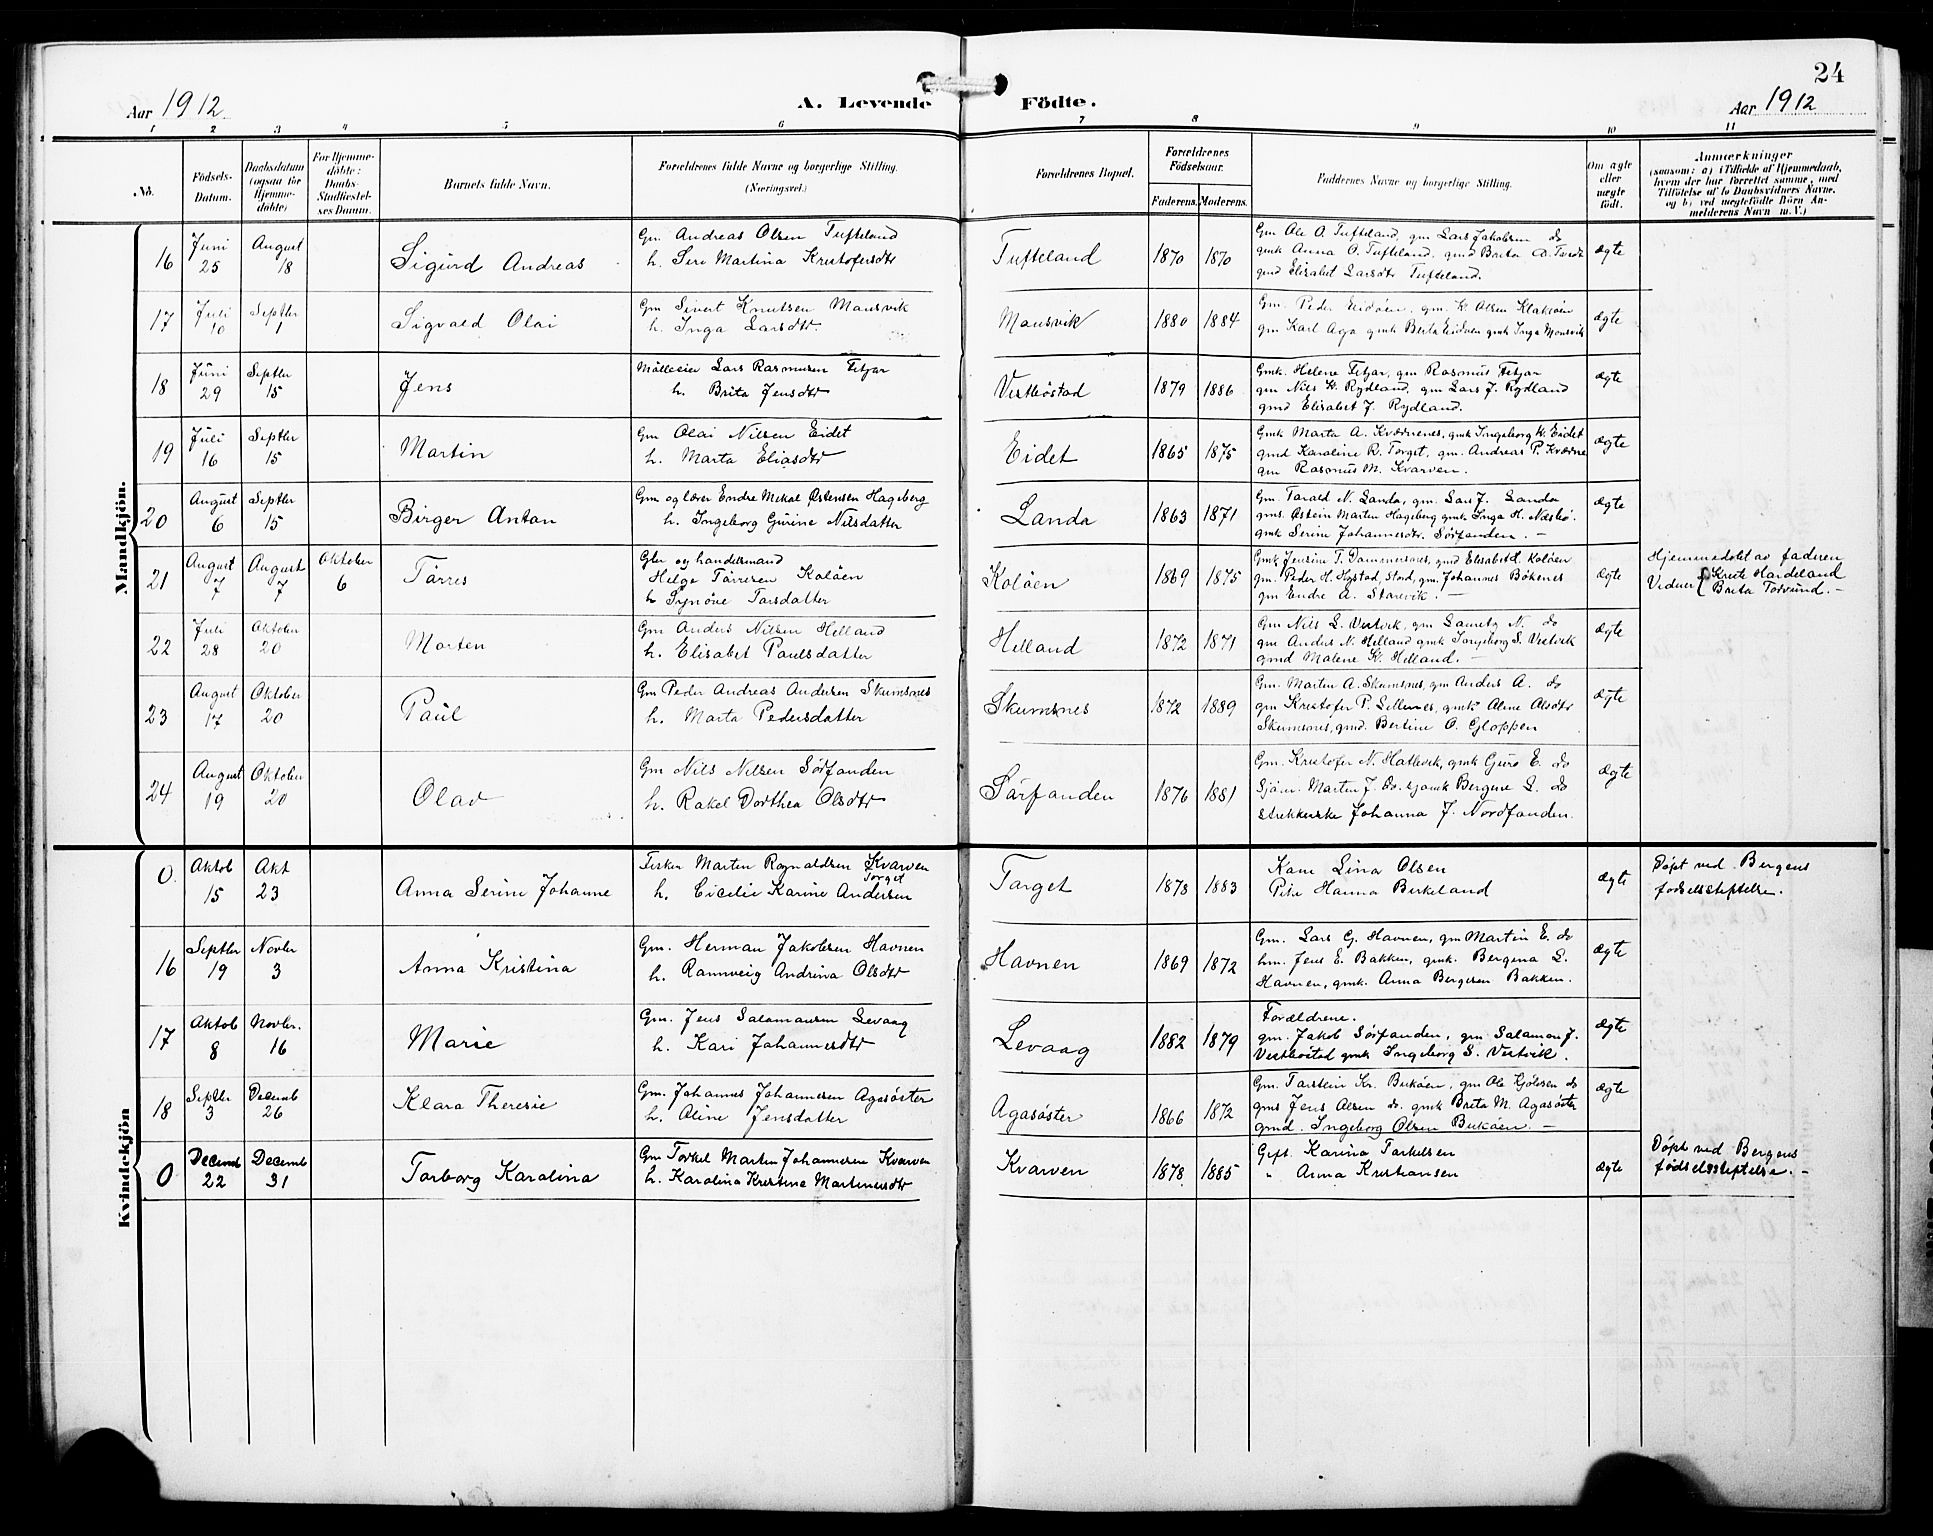 24
Aar 1912.
A. Levende Födte.
Aar 1912
1 2 3 4 5 6 7 8 9 10 11
No.
Födsels-Datum.
Daabsdatum (ogsaa for Hjemmedöbte)
For Hjemmedöbte: Daabs-Stadfæstelses Datum.
Barnets fulde Navn.
Forældrenes fulde Navne og borgerlige Stilling. (Næringsvei.)
Forældrenes Bopæl.
Forældrenes Födselsaar.
Faderens. Moderens.
Faddernes Navne og borgerlige Stilling.
Om ægte eller uægte födt.
Anmærkninger
(saasom: a) i Tilfælde af Hjemmedaab, hvem der har forrettet samme, med Tilföielse af to Daabsvidners Navne, og b) ved uægtefödte Börn Anmelderens Navn m. V.)
Mandkjön.
16 Juni 25 August 18 Sigurd Andreas
Gm. Andreas Olsen Tufteland
h. Seri Martina Kristofersdtr
Tufteland 1870 1870
Gm Ole A. Tufteland, gm Lars Jakobsen do
gmk Anna O. Tufteland, gmd Brita A.
gmd Elisabet Larsdtr Tufteland.
Ægte
17 Juli 10 Septbr 1 Sigvald Olai
Gm Sivert Knutsen Mausvik
h. Inga Larsdtr.
Mausvik 1880 1884
Gm. Peder Eidöen, gm. K. Olsen Klaköen
gm Karl Aga gmk Berta Eidöen gmk Inga Monsvik
Ægte
18 Juni 29 Septbr 15 Jens
Mölleeier Lars Rasmusen Fitjar
h. Brita Jensdtr
Vestböstad 1879 1886
Gmk. Helene Fitjar, gm Rasmus Fitjar
gm Nils H. Rydland, gm Lars J. Rydland
gmd Elisabet J. Rydland.
Ægte
19 Juli 16 Septbr 15 Martin
Gm Olai Nilsen Eidet
h. Marta Eliasdtr
Eidet 1865 1875
Gmk Marta A. Kværnenes, gmk Ingeborg H. Eidet
gmd Karoline R. Torget, gm. Andreas P. Kværne
gm Rasmus M. Kvarven.
Ægte
20 August 6 Septbr 15 Birger Anton
Gm og lærer Endre Mikal Östensen Hageberg
h. Ingeborg Gurine Nilsdatter
Landa 1863 1871
Gm. Tarald N. Landa, gm. Lars J. Landa
gms. Østein Marten Hageberg gmk. Inga H. Næsbö.
gmk Serine Johannesdtr. Sørfonden. —
Ægte
21 August 7 August 7 Oktober 6 Tørres
Gbr og handelsmand
Helge Tørresen Koløen
h Synöve Larsdatter
Koløen 1869 1875
Gmk Jensine T. Dammersnes, gmd Elisabet H. Koløen
gm. Peder H. Hystad, Stord, gm. Johannes Bökenes
gm Endre A. Starevik. —
Ægte
Hjemmedøbt av faderen
Vidner Brita Torsund. —
22 Juli 28 Oktober 20 Morten
Gm Anders Nilsen Helland
h. Elisabet Paulsdatter
Helland 1872 1871
Gm Nils L. Vestvik, gm Lauritz N. do
gm Anders N. Helland gmk Ingeborg S. Vestvik
gmd Malene K. Helland. —
Ægte
23 August 17 Oktober 20 Paul
Gm Peder Andreas Andersen Skumsnes
h. Marta Pedersdatter
Skumsnes 1872 1889
Gm. Martin A. Skumsnes, gm Anders A. do
gm Kristofer P. Sellevnes, gmk Aline Olsdtr
Skumsnes, gmd. Bertine O. Gloppen
Ægte
24 August 19 Oktober 20 Olav
Gm Nils Nilsen Sørfonden
h. Rakel Dorthea Olsdtr
Sørfonden 1876 1881
Gm. Kristofer N. Hatlevik, gmk Guro E. do
Sjøm. Marten J. do. sjømk Bergine L. do
Strikkerske Johanna J. Nordfonden.
Ægte
Kvindekjön
0. Oktob 15 Okt 23 Anna Serine Johanne
Fisker Marten Rognaldsen Kvarven Torget
h. Cicilie Karine Andersen
Torget 1878 1883
Kone Lina Olsen
Pike Hanna Birkeland
Ægte
Døpt ved Bergens
fødselsstiftelse.
16 Septbr 19 Novbr 3 Anna Kristina
Gm. Herman Jakobsen Havnen
h. Rannveig Andrina Olsdtr
Havnen 1869 1872
Gm. Lars G. Havnen, gm Martin E. do
hm. Jens E. Bakken, gmk. Bergina L.
Havnen, gmk. Anna Bergesen Bakken.
Ægte
17 Oktob 8 Novbr. 16 Marie
Gm. Jens Salamansen Levaag
h. Kari Johannesdtr
Levaag 1882 1879
Forældrene.
gm. Jakob Sørfonden, gm Salamon J.
Vestböstad gmk Ingeborg S. Vestvik.
Ægte
18 Septbr 3 Decemb 26 Klara Theresie
Gm. Johannes Johannesen Agasøster
h. Oline Jensdatter
Agasøster 1866 1872
Gm. Torstein Kr. Bukøen, gm Ole Kjølesen do
gms Jens Olsen do. gmk Brita M. Agasøster
gmd. Ingeborg Olsen Bukøen. —
Ægte
0 Decemb 22 Decemb 31 Torborg Karolina
Gm Torkel Marten Johannesen Kvarven
h. Karolina Kristine Martinusdtr
Kvarven 1878. 1885
Gift. Karina Torkelsen
" Anna Kristiansen
Ægte
Døpt ved Bergens
fødselsstiftelse. —